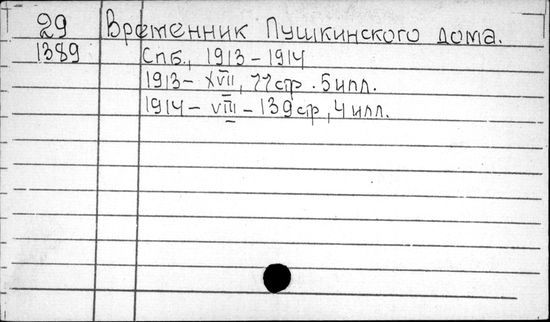 29 Временник Пушкинского дома.
1389 Спб., 1913-1914
1913- XVII, 77стр. 5илл.
1914- VIII - 139стр, 4илл.